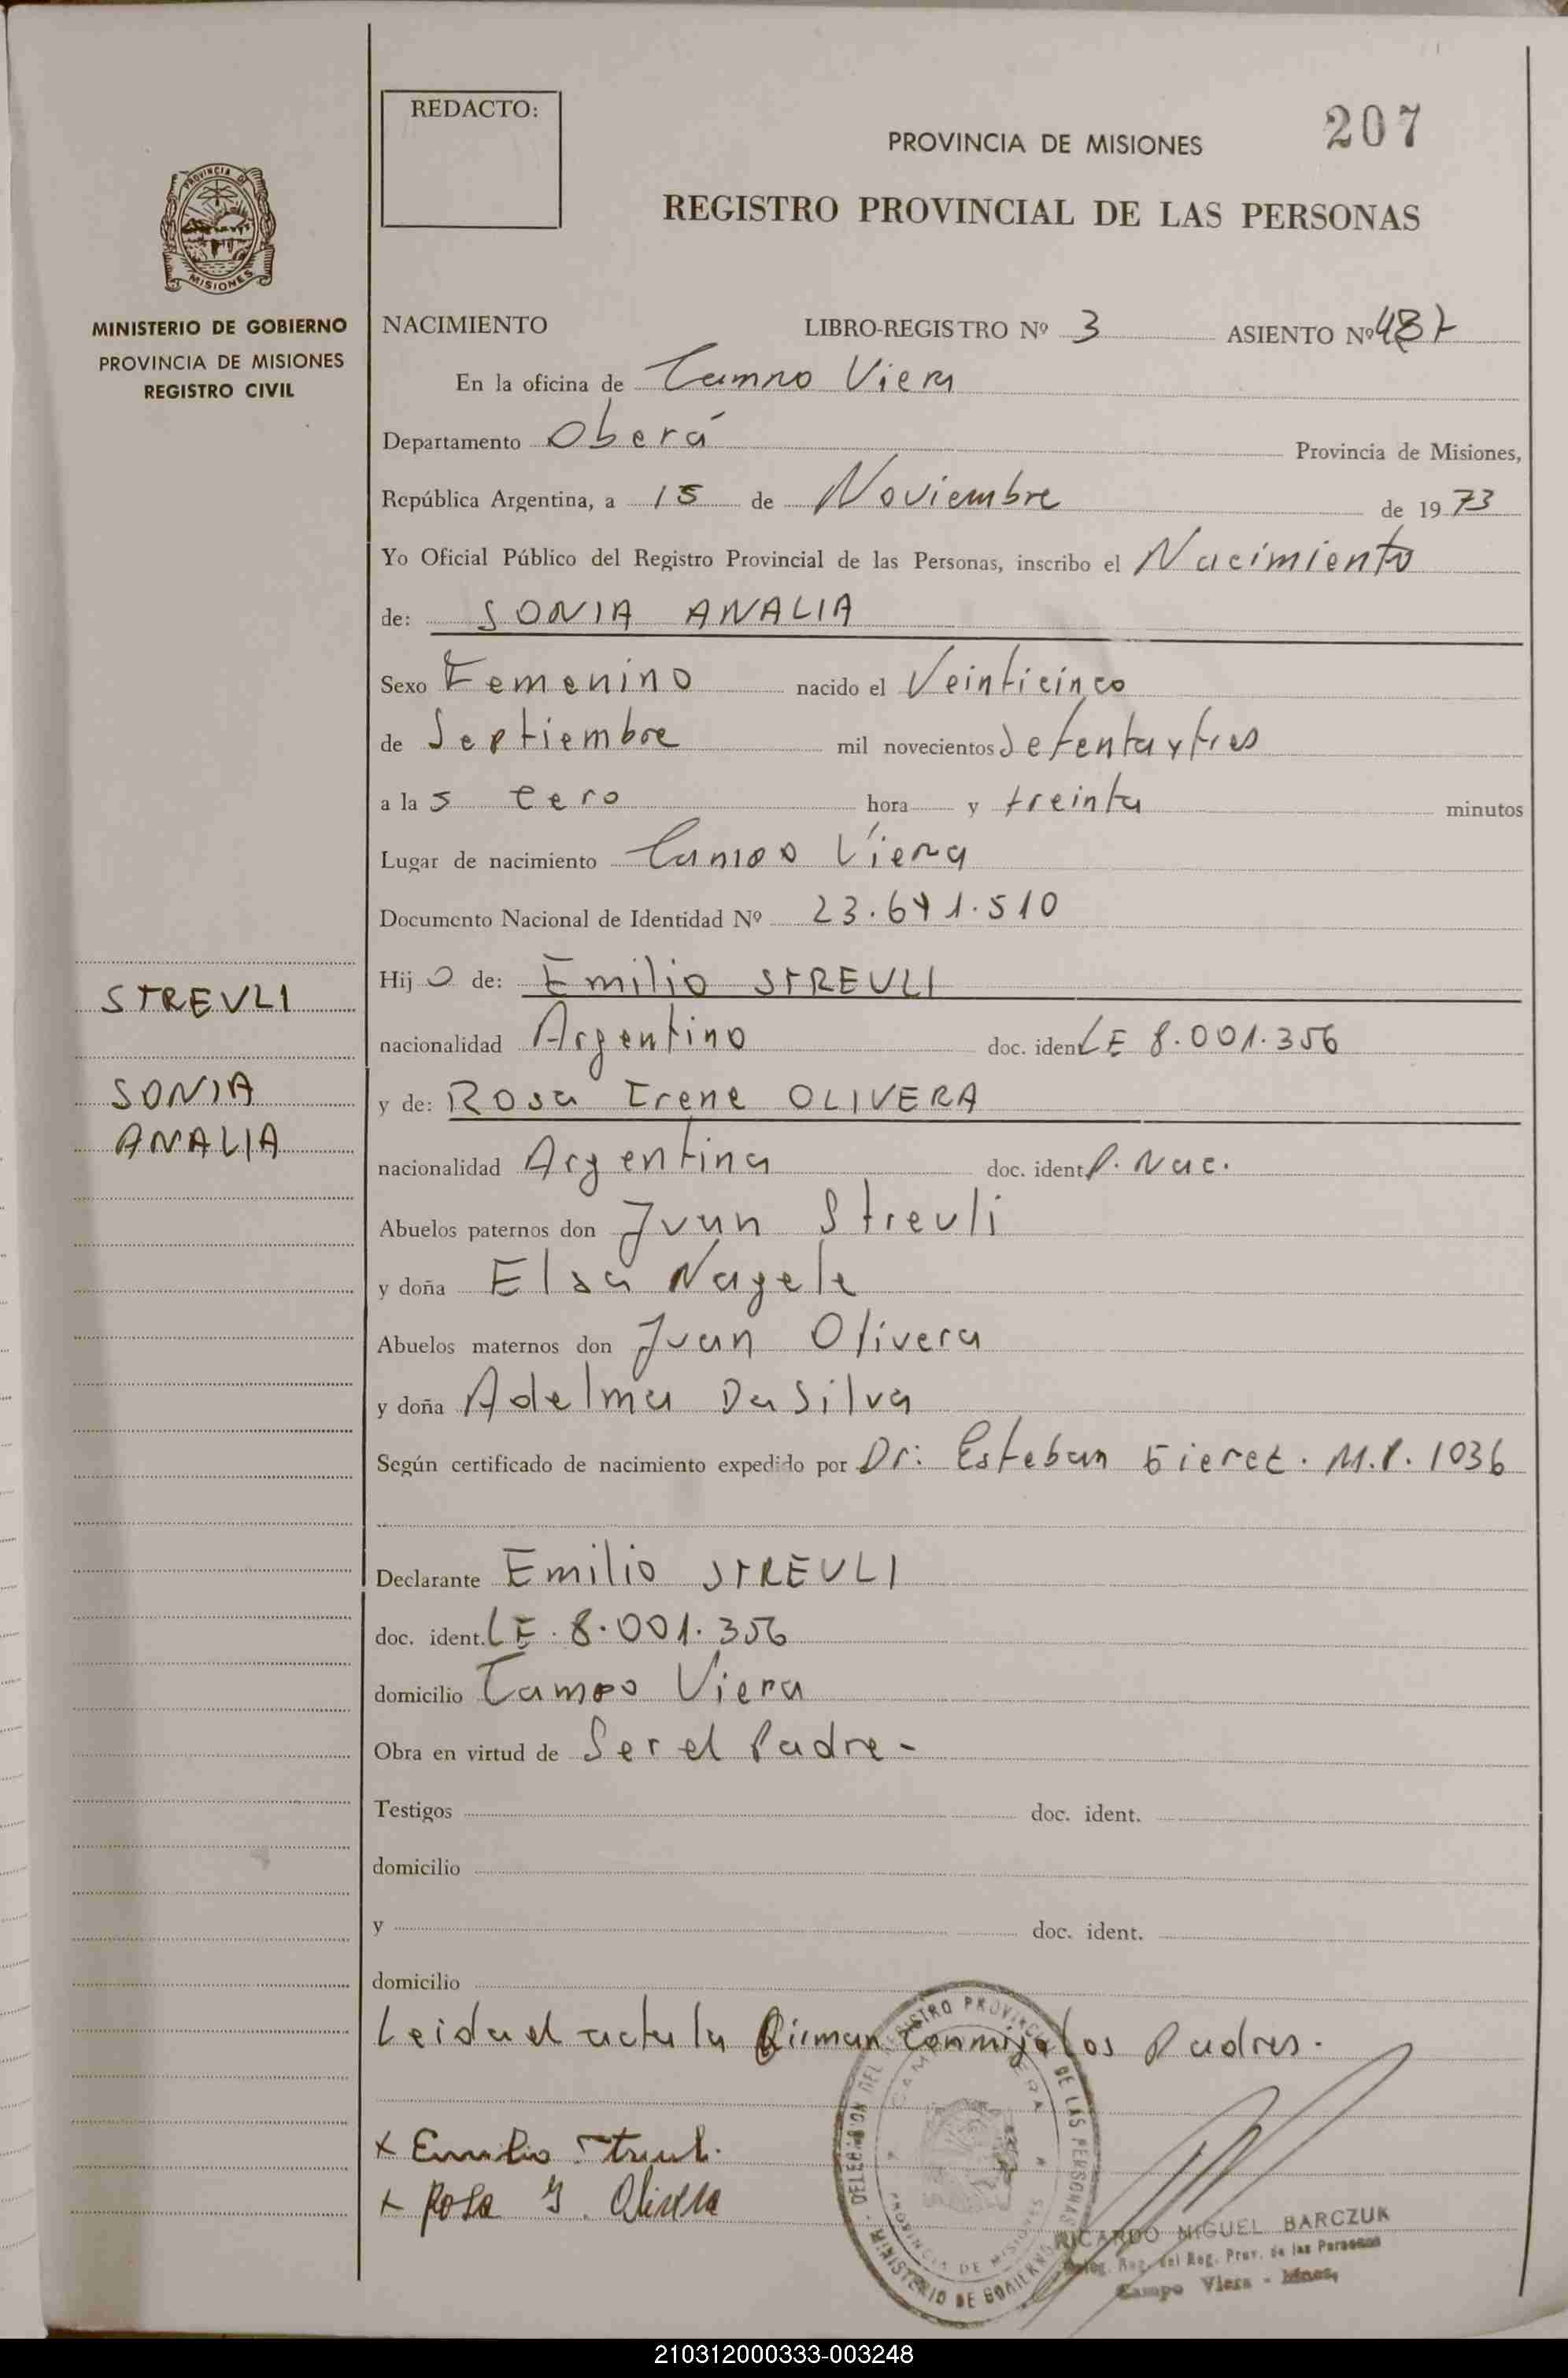 REDACTO:
207
PROVINCIA DE MISIONES
REGISTRO PROVINCIAL DE LAS PERSONAS
PROVINCIA DE
MISIONES
MINISTERIO DE GOBIERNO
PROVINCIA DE MISIONES
REGISTRO CIVIL
NACIMIENTO LIBRO-REGISTRO Nº 3 ASIENTO Nº
En la oficina de Campo Viera
Departamento Oberá Provincia de Misiones,
República Argentina, a 15 de Noviembre de 1973
Yo Oficial Público del Registro Provincial de las Personas, inscribo el Nacimiento
de: SONIA ANALIA
Sexo Femenino nacido el Veinticinco
de Septiembre mil novecientos Setenta y tres
a la s cero hora y treinta minutos
Lugar de nacimiento Campo Viera
Documento Nacional de Identidad Nº 23.641.510
STREULI
SONIA
ANALIA
Hij o de: Emilio STREULI
nacionalidad Argentino doc. ident LE 8.001.356
y de: Rosa Irene OLIVERA
nacionalidad Argentina doc. ident P. Nac.
Abuelos paternos don Juan Streuli
y doña Elsa Nagele
Abuelos maternos don Juan Olivera
y doña Adelma Da Silva
Según certificado de nacimiento expedido por Dr: Esteban M.P. 1036
Declarante Emilio STREULI
doc. ident. LE. 8.001.356
domicilio Campo Viera
Obra en virtud de Ser el Padre -
Testigos doc. ident.
domicilio
y doc. ident.
domicilio
Leida el acta la firman conmigo los Padres.
x Emilio Streuli.
x Rosa I. Olivera
DELEGACION DEL REGISTRO PROVINCIAL DE LAS PERSONAS
CAMPO VIERA
PROVINCIA DE MISIONES
MINISTERIO DE GOBIERNO
RICARDO MIGUEL BARCZUK
Deleg. Reg. del Reg. Prov. de las Personas
Campo Viera - Mnes.
210312000333-003248